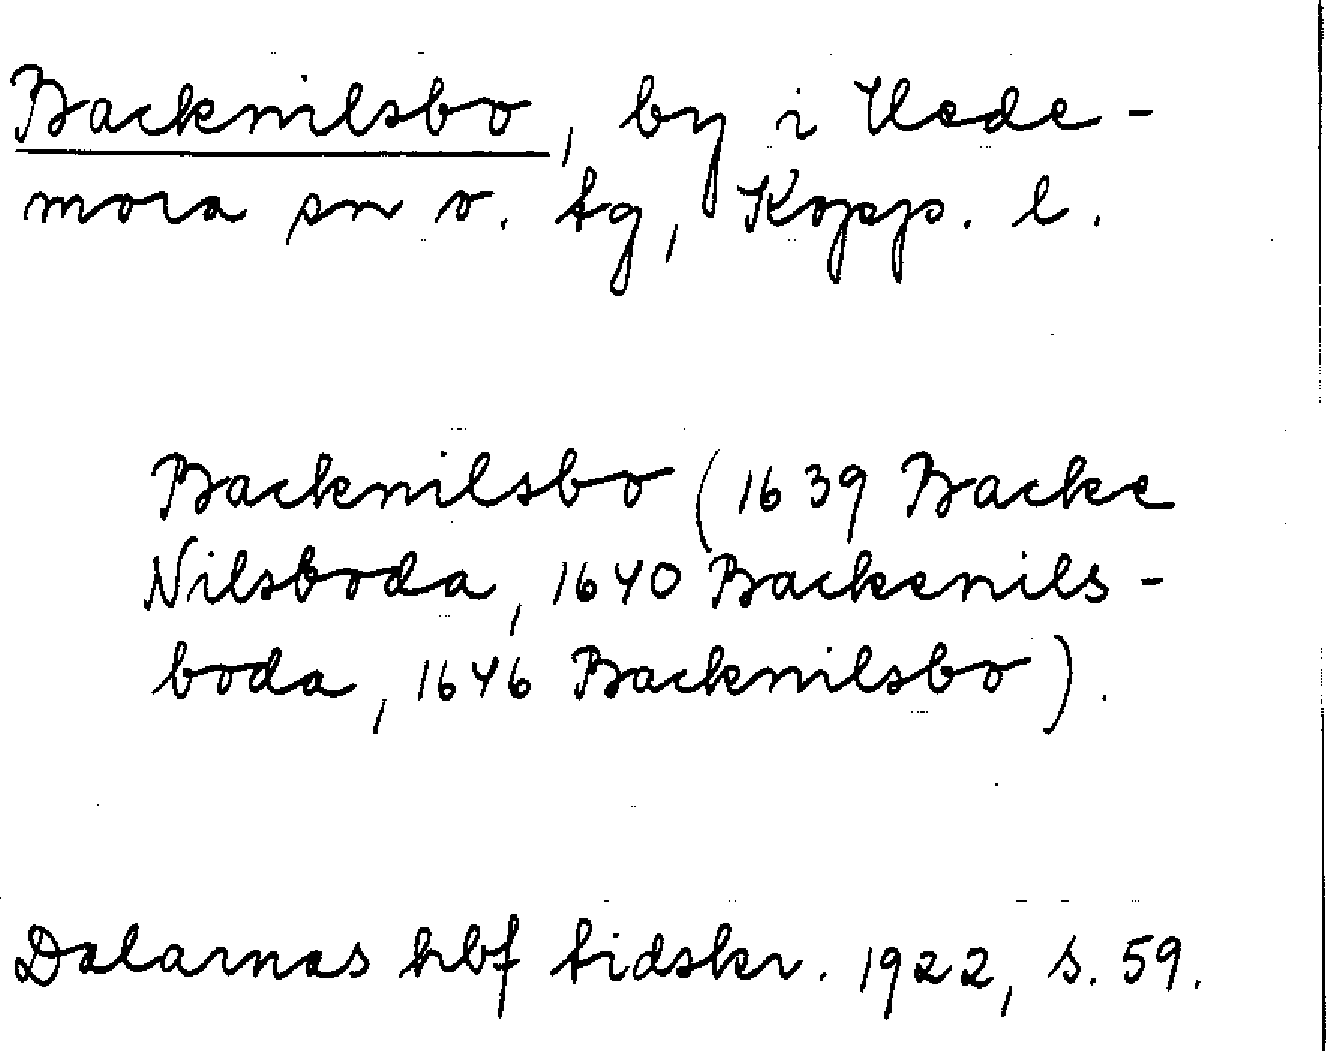 Backnilsbo, by i Hede-
mora sn o. tg, Kopp. l.
Backnilsbo (1639 Backe
Nilsboda, 1640 Backenils-
boda, 1646 Backnilsbo).
Dalarnas hbf tidskr. 1922, s. 59.